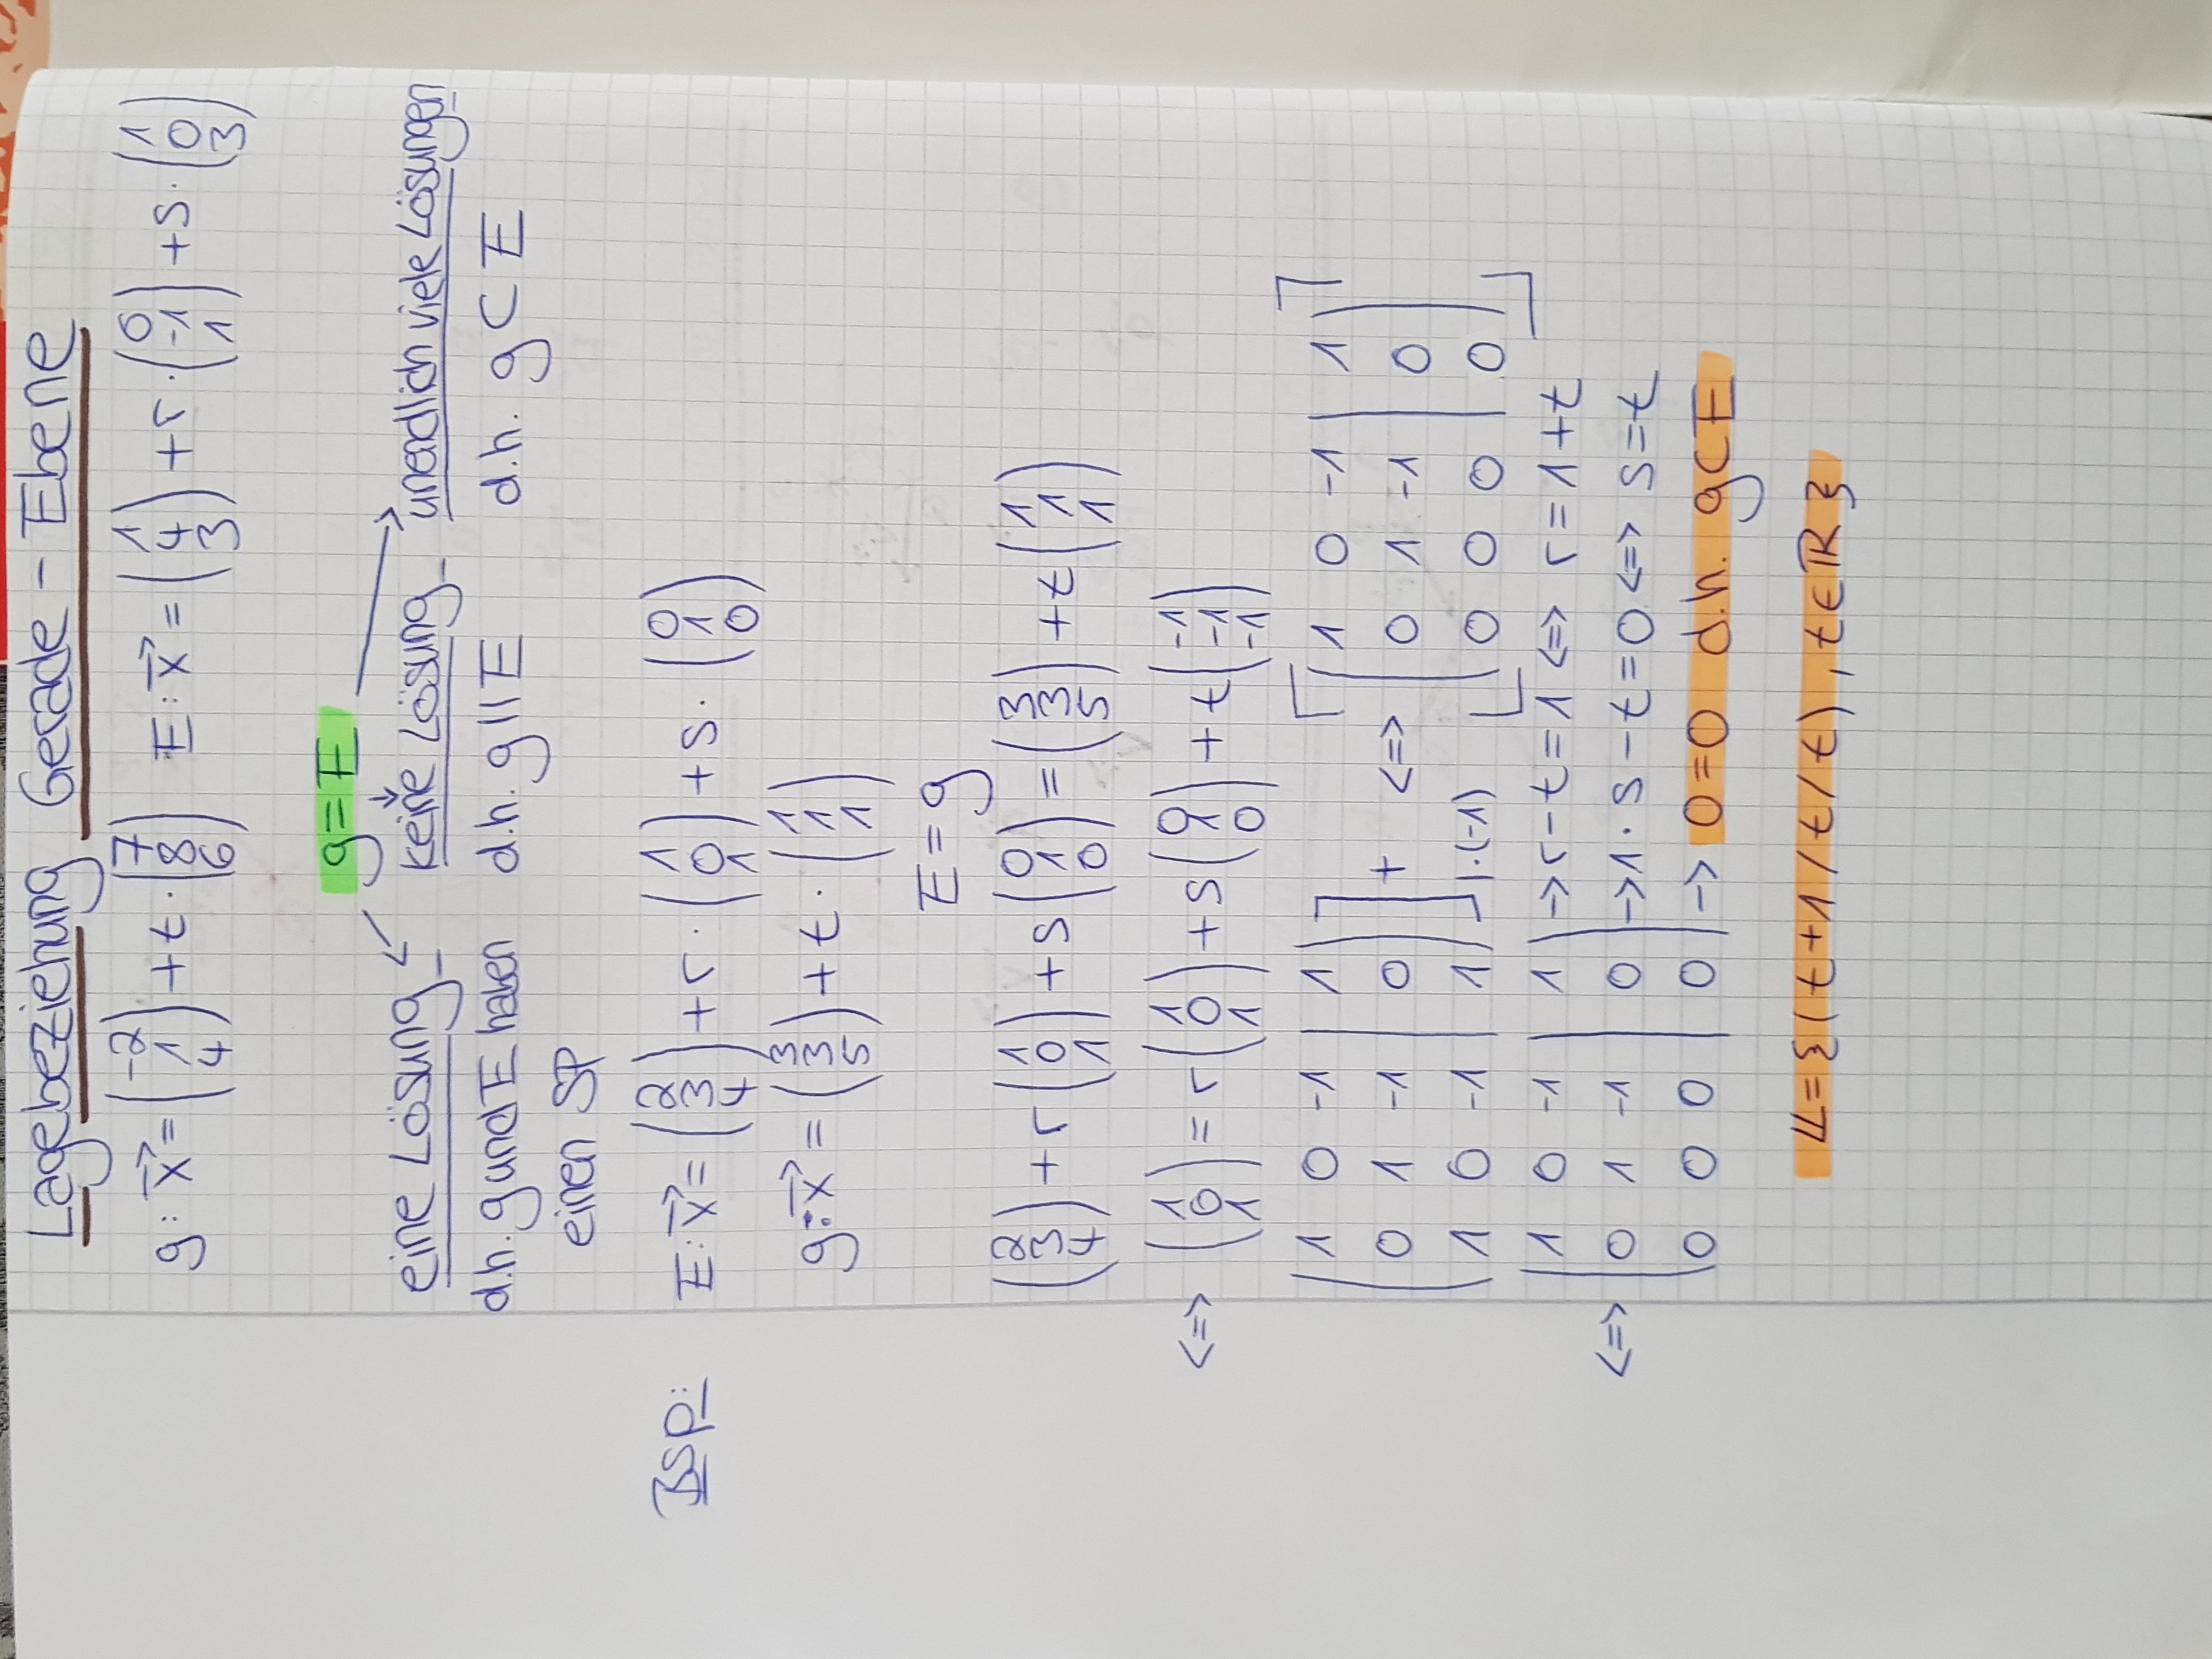 Lagebeziehung Gerade - Ebene
g: x⃗ = (-2 1 4) + t · (7 8 6) E: x⃗ = (1 4 3) + r · (0 -1 1) + s · (1 0 3)
g = E
eine Lösung keine Lösung unendlich viele Lösungen
d.h. g und E haben einen SP d.h. g || E d.h. g ⊂ E
BSP: E: x⃗ = (2 3 4) + r · (1 0 1) + s · (0 1 0)
g: x⃗ = (3 3 5) + t · (1 1 1)
E = g
(2 3 4) + r (1 0 1) + s (0 1 0) = (3 3 5) + t (1 1 1)
<=> (1 0 1) = r (1 0 1) + s (0 1 0) + t (-1 -1 -1)
(1 0 -1 | 1) [(1 0 -1 | 1)
(0 1 -1 | 0) + <=> (0 1 -1 | 0)
(1 0 -1 | 1) | · (-1) (0 0 0 | 0)]
(1 0 -1 | 1) -> r - t = 1 <=> r = 1 + t
<=> (0 1 -1 | 0) -> 1 · s - t = 0 <=> s = t
(0 0 0 | 0) -> 0 = 0 d.h. g ⊂ E
𝕃 = {(t + 1 / t / t), t ∈ ℝ}